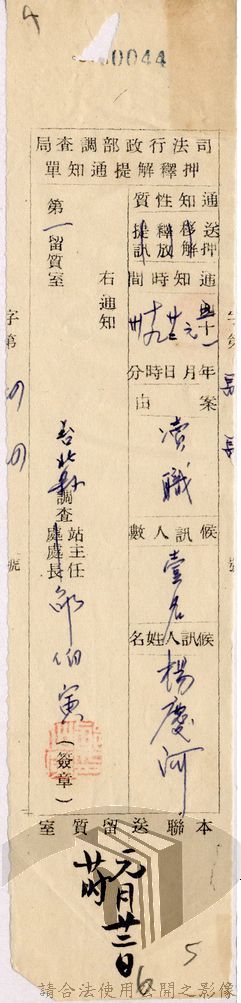 00044
司法行政部調查局
押釋解提通知單
通知性質
送押
釋放
移解
提訊
通知時間
五十一 元 廿三 十九 卅
年月日時分
案由
瀆職
候訊人數
壹名
候訊人姓名
楊慶河
右通知
第一留質室
台北縣調查
站主任
處處長
(簽章)
字第
號
本聯送留質室
元月廿三日
廿時
6
5
請合法使用公開之影像